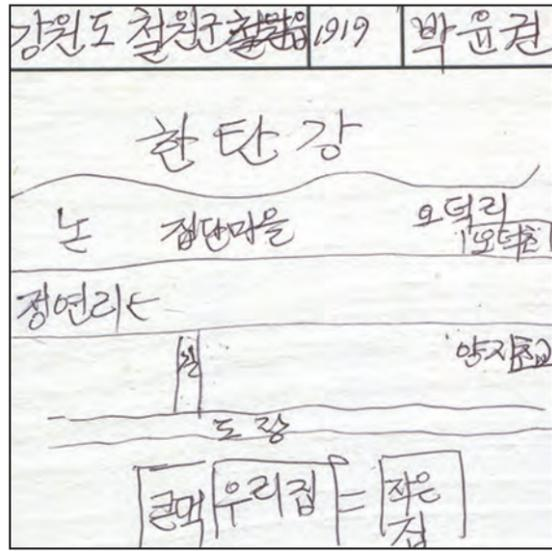 강원도 철원군 철원읍 1919 박윤권
한탄강
논 집단마을 오덕리
오덕초
정연리
길 양지
도장
우리집 = 작은
집